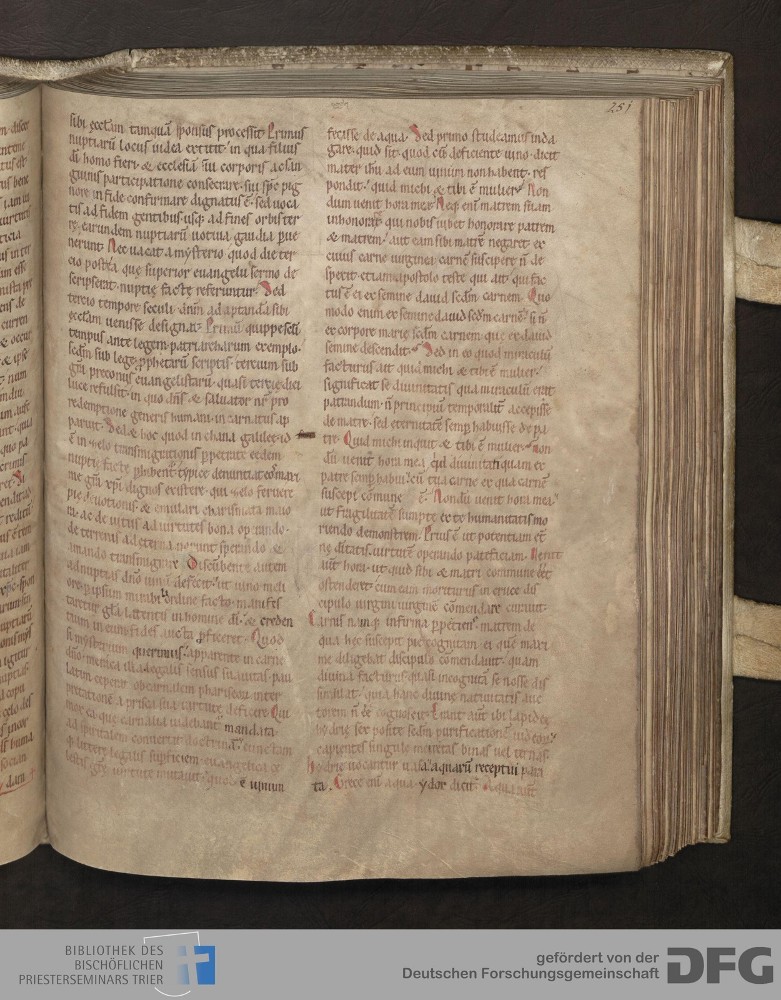 251
sibi ecclam tanquã sponsus processit. Primus
nuptiarũ locus iudea extitit in qua filius
dĩ homo fieri & ecclesiã sui corporis ac san
guinis participatione consecrare sui spc pig
nore in fide confirmare dignatus ẽ. sed uoca
tis ad fidem gentibus usq; ad fines orbis ter
rę. earundem nuptiarũ uotiua gaudia pue
nerunt. Nec uacat a mysterio quod die ter
cio postea quę superior euangelii sermo de
scripserat. nuptię factę referuntur. Sed
tercio tempore seculi dnm ad aptandã sibi
ecclam uenisse designat. Primũ quippe seculi
tempus ante legem patriarcharum exemplo.
scdm sub lege pphetarũ scriptis. tercium sub
grã preconiis euangelistarũ. quasi tercię diei
luce refulsit. in quo dñs & saluator nr̃ pro
redemptione generis humani incarnatus ap
paruit. Sed & hoc quod in chana galileę id
ẽ in zelo transmigrationis ppetratę eedem
nuptię factę phibent. typice denuntiat eos maxi
me grã xpi dignos existere. qui zelo feruere
pię deuotionis & emulari charismata maio
ra. ac de uitiis ad uirtutes bona operando.
de terrenis ad eterna norunt sperando &
amando transmigrare. Discũbente autem
ad nuptias dño uinũ defecit. ut uino meli
ore p ipsum mirabili ordine facto. manifes
taretur gla latentis in homine dĩ. & creden
tium in eum fides aucta pficeret. Quod
si mysterium querimus. apparente in carne
dño. meraca illa legalis sensus suauitas pau
latim ceperat ob carnalem phariseorũ inter
pretationẽ a prisca sua uirtute deficere. Qui
mox ea quę carnalia uidebant mandata.
ad spiritalem conuertit doctrinã. cunctam
q; litterę legalis superficiem. euangelica ce
lestis grę uirtute mutauit. quod ẽ uinum
fecisse de aqua. Sed primo studeamus inda
gare. quid sit. quod cũ deficiente uino. dicit
mater ihu ad eum uinum non habent. res
pondit. quid michi & tibi ẽ mulier. Non
dum uenit hora mea. Neq; enĩ matrem suam
inhonoraret qui nobis iubet honorare patrem
& matrem. aut eam sibi matrẽ negaret ex
cuius carne uirginea carnẽ suscipere ñ de
spexit. etiam apostolo teste qui ait. qui fac
tus ẽ ei ex semine dauid scdm carnem. Quo
modo enim ex semine dauid scdm carnẽ. si ñ
ex corpore marię scdm carnem. quę ex dauid
semine descendit. Sed in eo quod miraculũ
facturus ait. quid michi & tibi ẽ mulier.
significat se diuinitatis qua miraculũ erat
patrandum. ñ principiũ temporaliter accepisse
de matre. sed eternitatẽ semp habuisse de pa
tre. Quid michi inquit & tibi ẽ mulier. non
dũ uenit hora mea. cũ diuinitati quam ex
patre semp habui. cũ tua carne ex qua carnẽ
suscepi. cõmune ẽ. Nondũ uenit hora mea.
ut fragilitatẽ sumptę ex te humanitatis mo
riendo demonstrem. Prius ẽ ut potentiam ęt
nę diitatis uirtutẽ operando patefaciam. Venit
aũt hora. ut quid sibi & matri commune eet
ostenderet. cum eam moriturus in cruce dis
cipulo uirgini uirginẽ cõmendare curauit.
Carnis namq; infirma ppetiens. matrem de
qua hęc suscepit pie cognitam. ei quẽ maxi
me diligebat discipulo cõmendauit. quam
diuina facturus quasi incognitã se nosse dis
simulat. quia hanc diuinę natiuitatis auc
torem ñ ẽẽ cognoscit. Erant aũt ibi lapideę
hydrię sex positę scdm purificationẽ iudeorũ.
capientes singulę metretas binas uel ternas.
Hydrię uocantur uasa aquarũ receptui para
ta. Grece enĩ aqua. ydor dicit. Aqua aũt
BIBLIOTHEK DES
BISCHÖFLICHEN
PRIESTERSEMINARS TRIER
gefördert von der
Deutschen Forschungsgemeinschaft
DFG